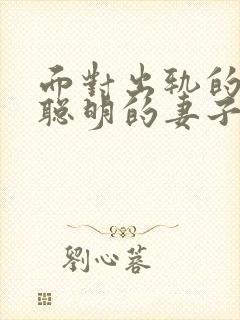 面對出軌的
聰明的妻子
劉心蓉